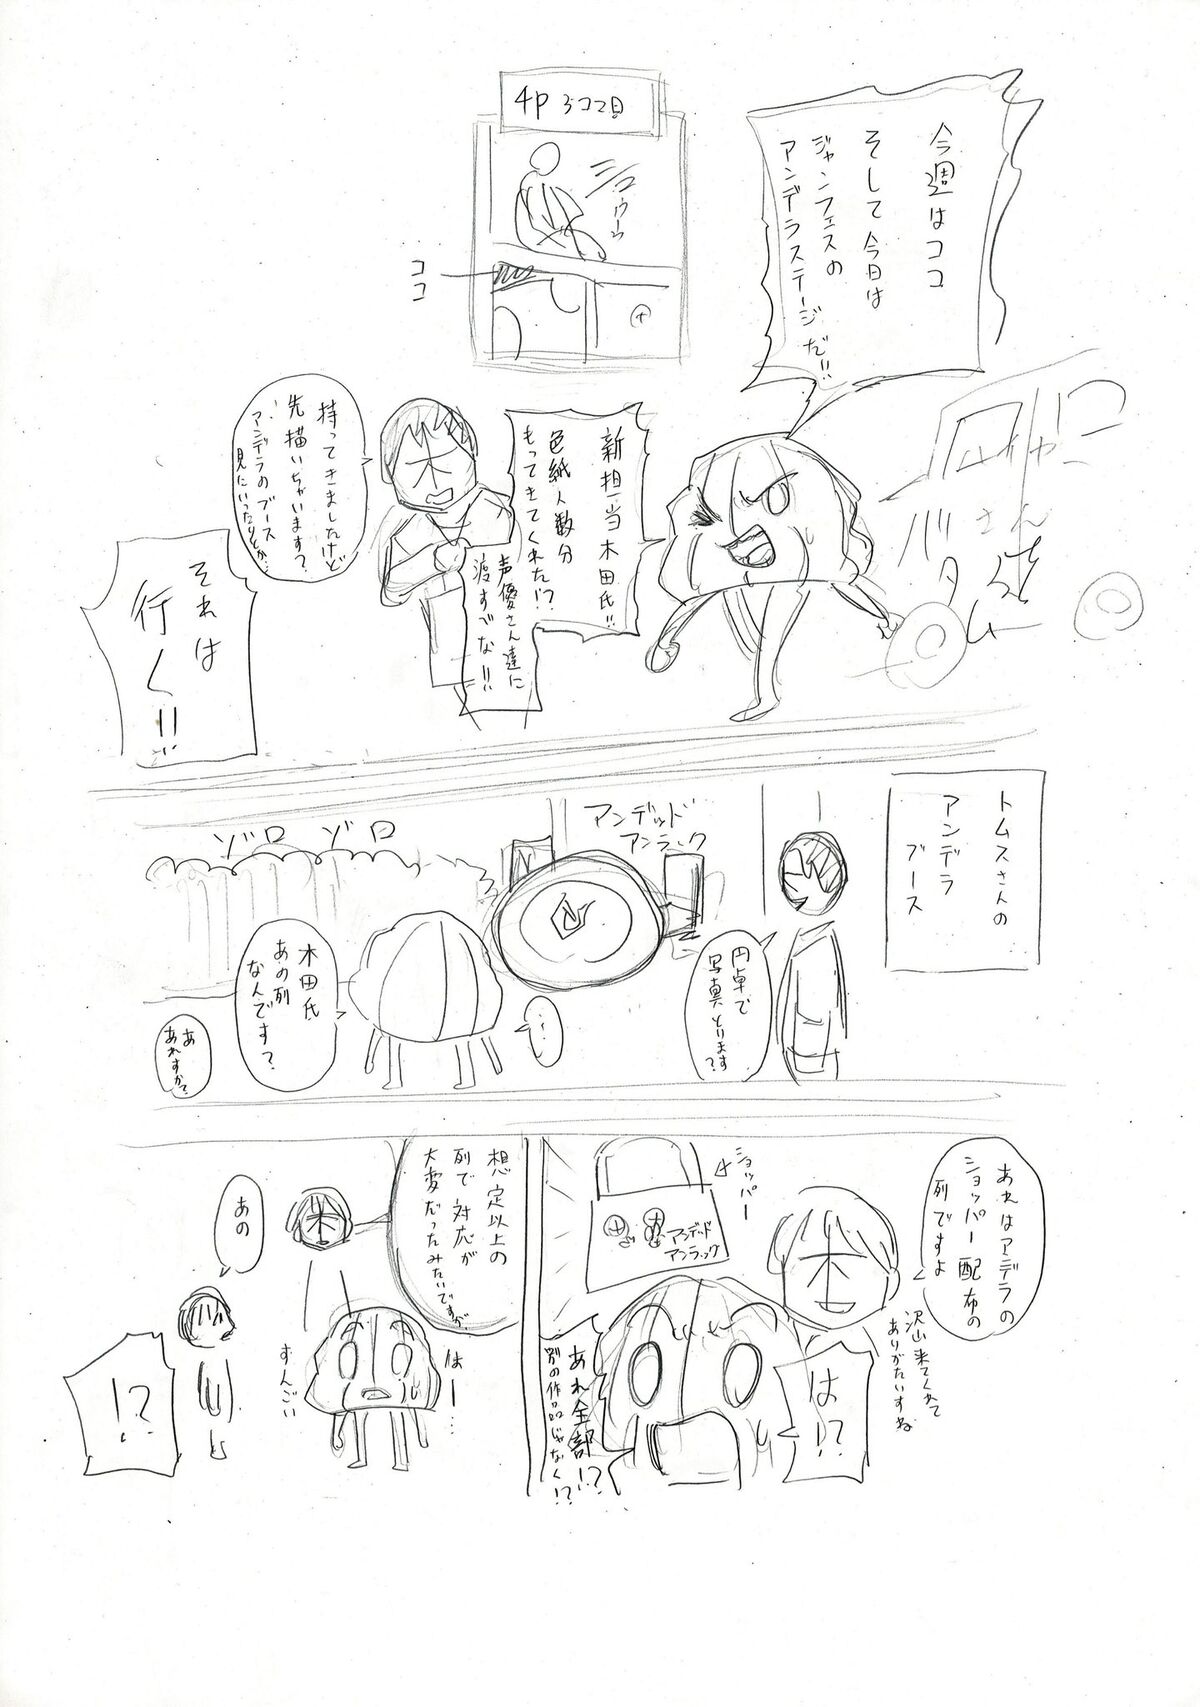 今週はココ
そして今日は
ジャンフェスの
アンデラステージだ!!
4P 3コマ目
ココ
新担当木田氏!!
色紙人数分
もってきてくれた!?
声優さん達に
渡すでな!!
木
持ってきましたけど
先描いちゃいます?
アンデラのブース
見にいったりとか…
それは
行く!!
トムスさんの
アンデラ
ブース
アンデッド
アンラック
ゾロ ゾロ
円卓で
写真とります?
…
木田氏
あの列
なんです?
あ
あれすか?
あれはアンデラの
ショッパー配布の
列ですよ
沢山来てくれて
ありがたいすね
木
ショッパー
アンデッド
アンラック
は!?
あれ全部!?
別の作品じゃなく!?
想定以上の
列で対応が
大変だったみたいですが
木
はー…
すんごい
あの
!?